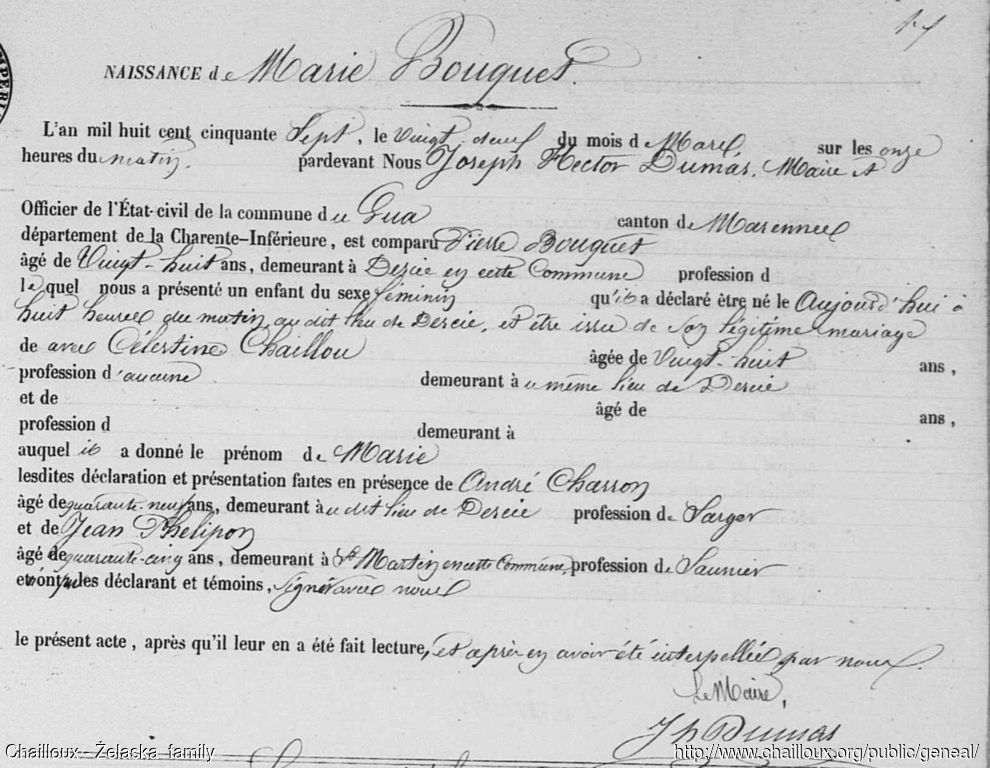 17
NAISSANCE de Marie Bouquet.
L'an mil huit cent cinquante Sept, le Vingt-deux du mois de Mars sur les onze
heures du matin. pardevant Nous Joseph Hector Dumas, Maire et
Officier de l'État-civil de la commune du Gua canton de Marennes
département de la Charente-Inférieure, est comparu Pierre Bouquet
âgé de Vingt-huit ans, demeurant à Dercie en cette Commune profession d
lequel nous a présenté un enfant du sexe féminin qu'il a déclaré être né le Aujourd'hui à
huit heures du matin, au dit lieu de Dercie, et être issu de son légitime mariage
de avec Célestine Chaillou âgée de Vingt-huit ans,
profession d'aucune demeurant à u même lieu de Dercie
et de âgé de ans,
profession d demeurant à
auquel il a donné le prénom de Marie
lesdites déclaration et présentation faites en présence de André Charron
âgé de quarante-neuf ans, demeurant au dit lieu de Dercie profession de
et de Jean Phelipon
âgé de quarante-cinq ans, demeurant à St Martin en cette Commune, profession de Saunier
et n'ont pu les déclarant et témoins, signer avec nous
le présent acte, après qu'il leur en a été fait lecture, et après en avoir été interpellés par nous.
Le Maire,
Jh Dumas
Chailloux - Żelaska family
http://www.chailloux.org/public/geneal/